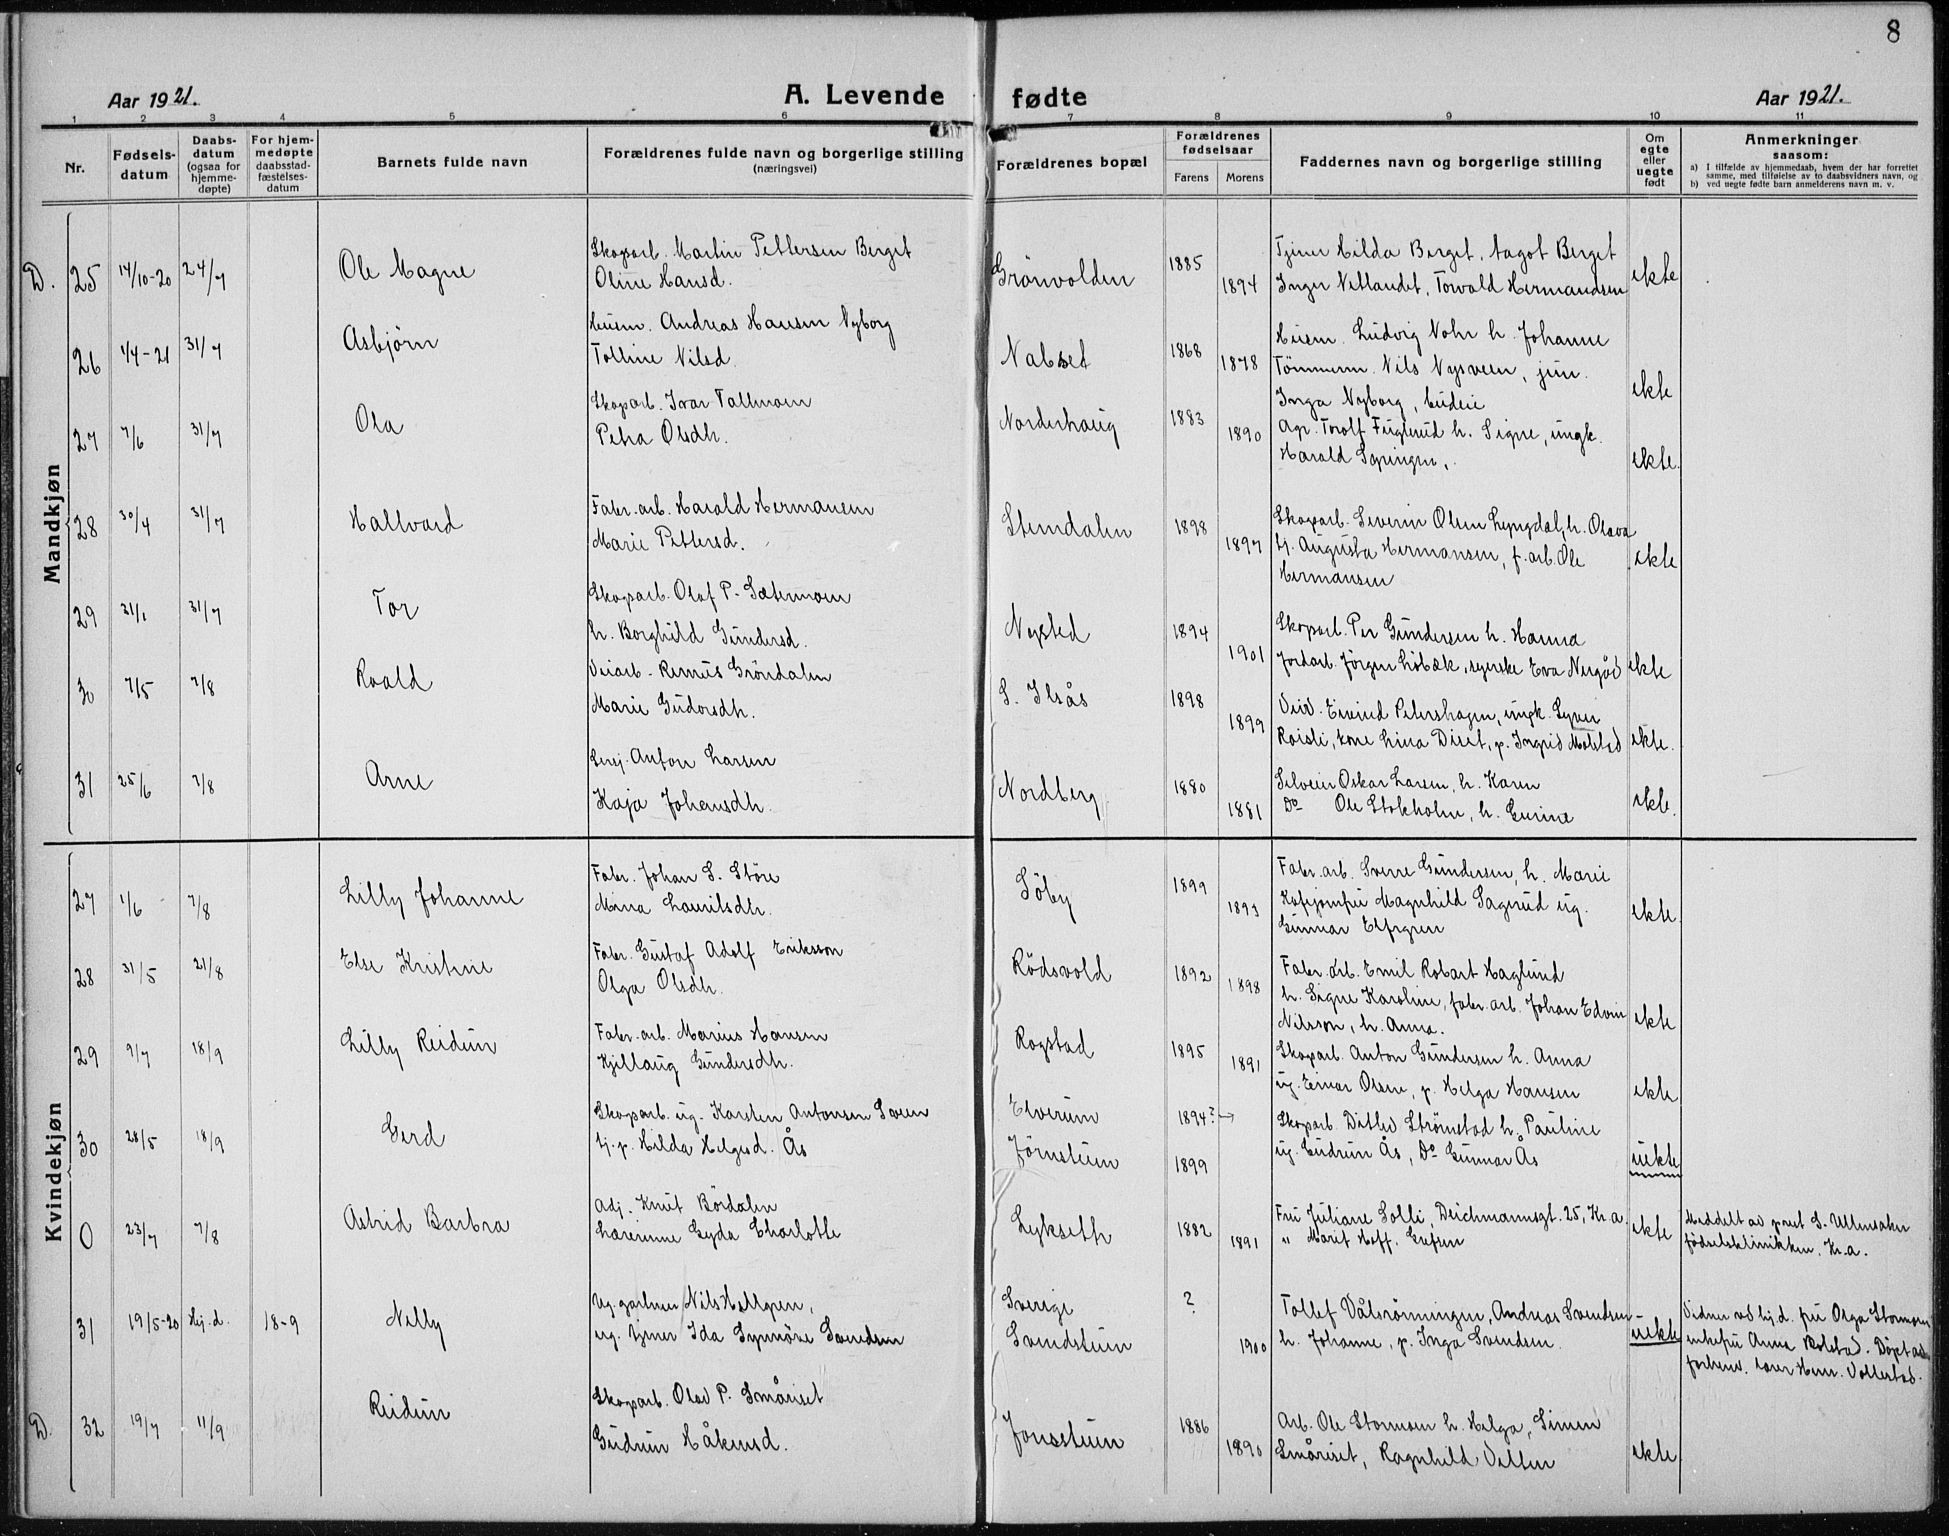 8
Aar 1921.
A. Levende fødte
Aar 1921.
1 2 3 4 5 6 7 8 9 10 11
Nr.
Fødsels-
datum
Daabs-
datum
(ogsaa for
hjemme-
døpte)
For hjem-
medøpte
daabsstad-
fæstelses-
datum
Barnets fulde navn
Forældrenes fulde navn og borgerlige stilling
(næringsvei)
Forældrenes bopæl
Forældrenes
fødselsaar
Farens Morens
Faddernes navn og borgerlige stilling
Om
egte
eller
uegte
født
Anmerkninger
saasom:
a) I tilfælde av hjemmedaab, hvem der har forrettet
samme, med tilføielse av to daabsvidners navn, og
b) ved uegte fødte barn anmelderens navn m. v.
Mandkjøn
D. 25 14/10-20 24/7 Ole Magne
Skogsarb. Martin Pettersen Berget
Oline Hansd.
Grönvolden 1885 1894
Tjener Hilda Berget, Aagot Berget
Inger Netlandet, Torvald Hermandsen
ekte
26 1/4-21 31/7 Asbjørn
Huem. Andreas Hansen Nyborg
Tolline Nilsd.
Nabset 1868 1878
Huem. Ludvig Nohr h. Johanne
Tömmerm. Nils Nysveen, jun.
Inga Nyborg, budeie
ekte
27 7/6 31/7 Ola
Skogsarb. Ivar Tallmoen
Petra Olsdtr.
Norderhaug 1883 1890
Agr. Torolf Fuglerud h. Signe, ungk.
Harald
ekte.
28 30/4 31/7 Hallvard
Fabr. arb. Harald Hermansen
Marie Pettersd.
Stemdalen 1898 1897
Skogsarb. Severin Olsen Lyngdal, h. Olava
tj. Augusta Hermansen, f. arb. Ole
Hermansen
ekte
29 31/1 31/7 Tor
Skogsarb. Olaf P. Sætermoen
h. Borghild Gundersd.
Nysted 1894 1901
Skogsarb. Per Gundersen h. Hanna
Jordarb. Jörgen Löbæk, syerske Eva Nergård
ekte
30 7/5 7/8 Roald
Veiarb. Remus Gröndalen
Marie Gudorsdtr.
S. Ilsås 1898 1899
Veiv. Eivind Petershagen, ungk. Syver
Roisli, kone Lina Diset, p. Ingrid Molstad
ekte.
31 25/6 7/8 Arne
Anton Larsen
Kaja Johansdtr.
Nordberg 1880 1881
Selveier Oskar Larsen, h. Karen
Do Ole Stokholm, h. Gurine
ekte.
Kvindekjøn
27 1/6 7/8 Lilly Johanne
Fabr. Johan S. Störe
Mina Lauritsdtr.
Söby 1899 1893
Fabr. arb. Sverre Gundersen, h. Marie
Kafejomfru Magnhild Sagrud ug.
Gunnar Elfrgren
ekte.
28 31/5 21/8 Else Kristine
Fabr. Gustaf Adolf Eriksson
Olga Olsdtr.
Rödsvold 1892 1898
Fabr. arb. Emil Robert Haglund
h. Signe Karoline, fabr. arb. Johan Edvin
Nilsson, h. Anna.
ekte
29 9/7 18/9 Lilly Reidun
Fabr. arb. Marius Hansen
Kjellaug Gundersdtr.
Rogstad 1895 1891
Skogsarb. Anton Gundersen h. Anna
ug. Einar Olsen, p. Helga Hansen
ekte
30 28/5 18/9 Gerd
Skogsarb. ug. Karsten Antonsen Sveen
tj. p. Hilda Helgesd. Ås
Elverum 1894?
Jörnstuen 1899
Skogsarb. Ditlev Strömstad h. Pauline
ug. Gudrun Ås, Do Gunnar Ås
uekte
0 23/7 7/8 Astrid Barbra
Adj. Knut Bördalen
Lærerinne Gyda Charlotte
Lykseth 1882 1891
Fru Juliane Solli, Deichmannsgt. 25, Kr.a.
" Marit Hoff. Grefsen
ekte
Meddelt av prest S. Ullensaker
födselsklinikken, Kr.a.
31 19/5-20 Hj. d. 18-9 Nelly
Ug. gartner Nils Hellgren,
ug. tjener Ida Synnöve Svendsen
Sverige ?
Svendstuen 1900
Tollef Vålsrönningen, Andreas Svendsen
h. Johanne, p. Inga Svendsen.
uekte
Vidner ved hj.d. fru Olga Stormoen
enkefru Anna Rolstad. Döpt av
forhenv. lærer Herm. Vollestad.
D. 32 19/7 11/9 Reidun
Skogsarb. Olav P. Småriset
Gudrun Håkensd.
Jonsstuen 1886 1890
Arb. Ole Stormoen h. Helga, Simen
Småriset, Ragnhild Velten
ekte